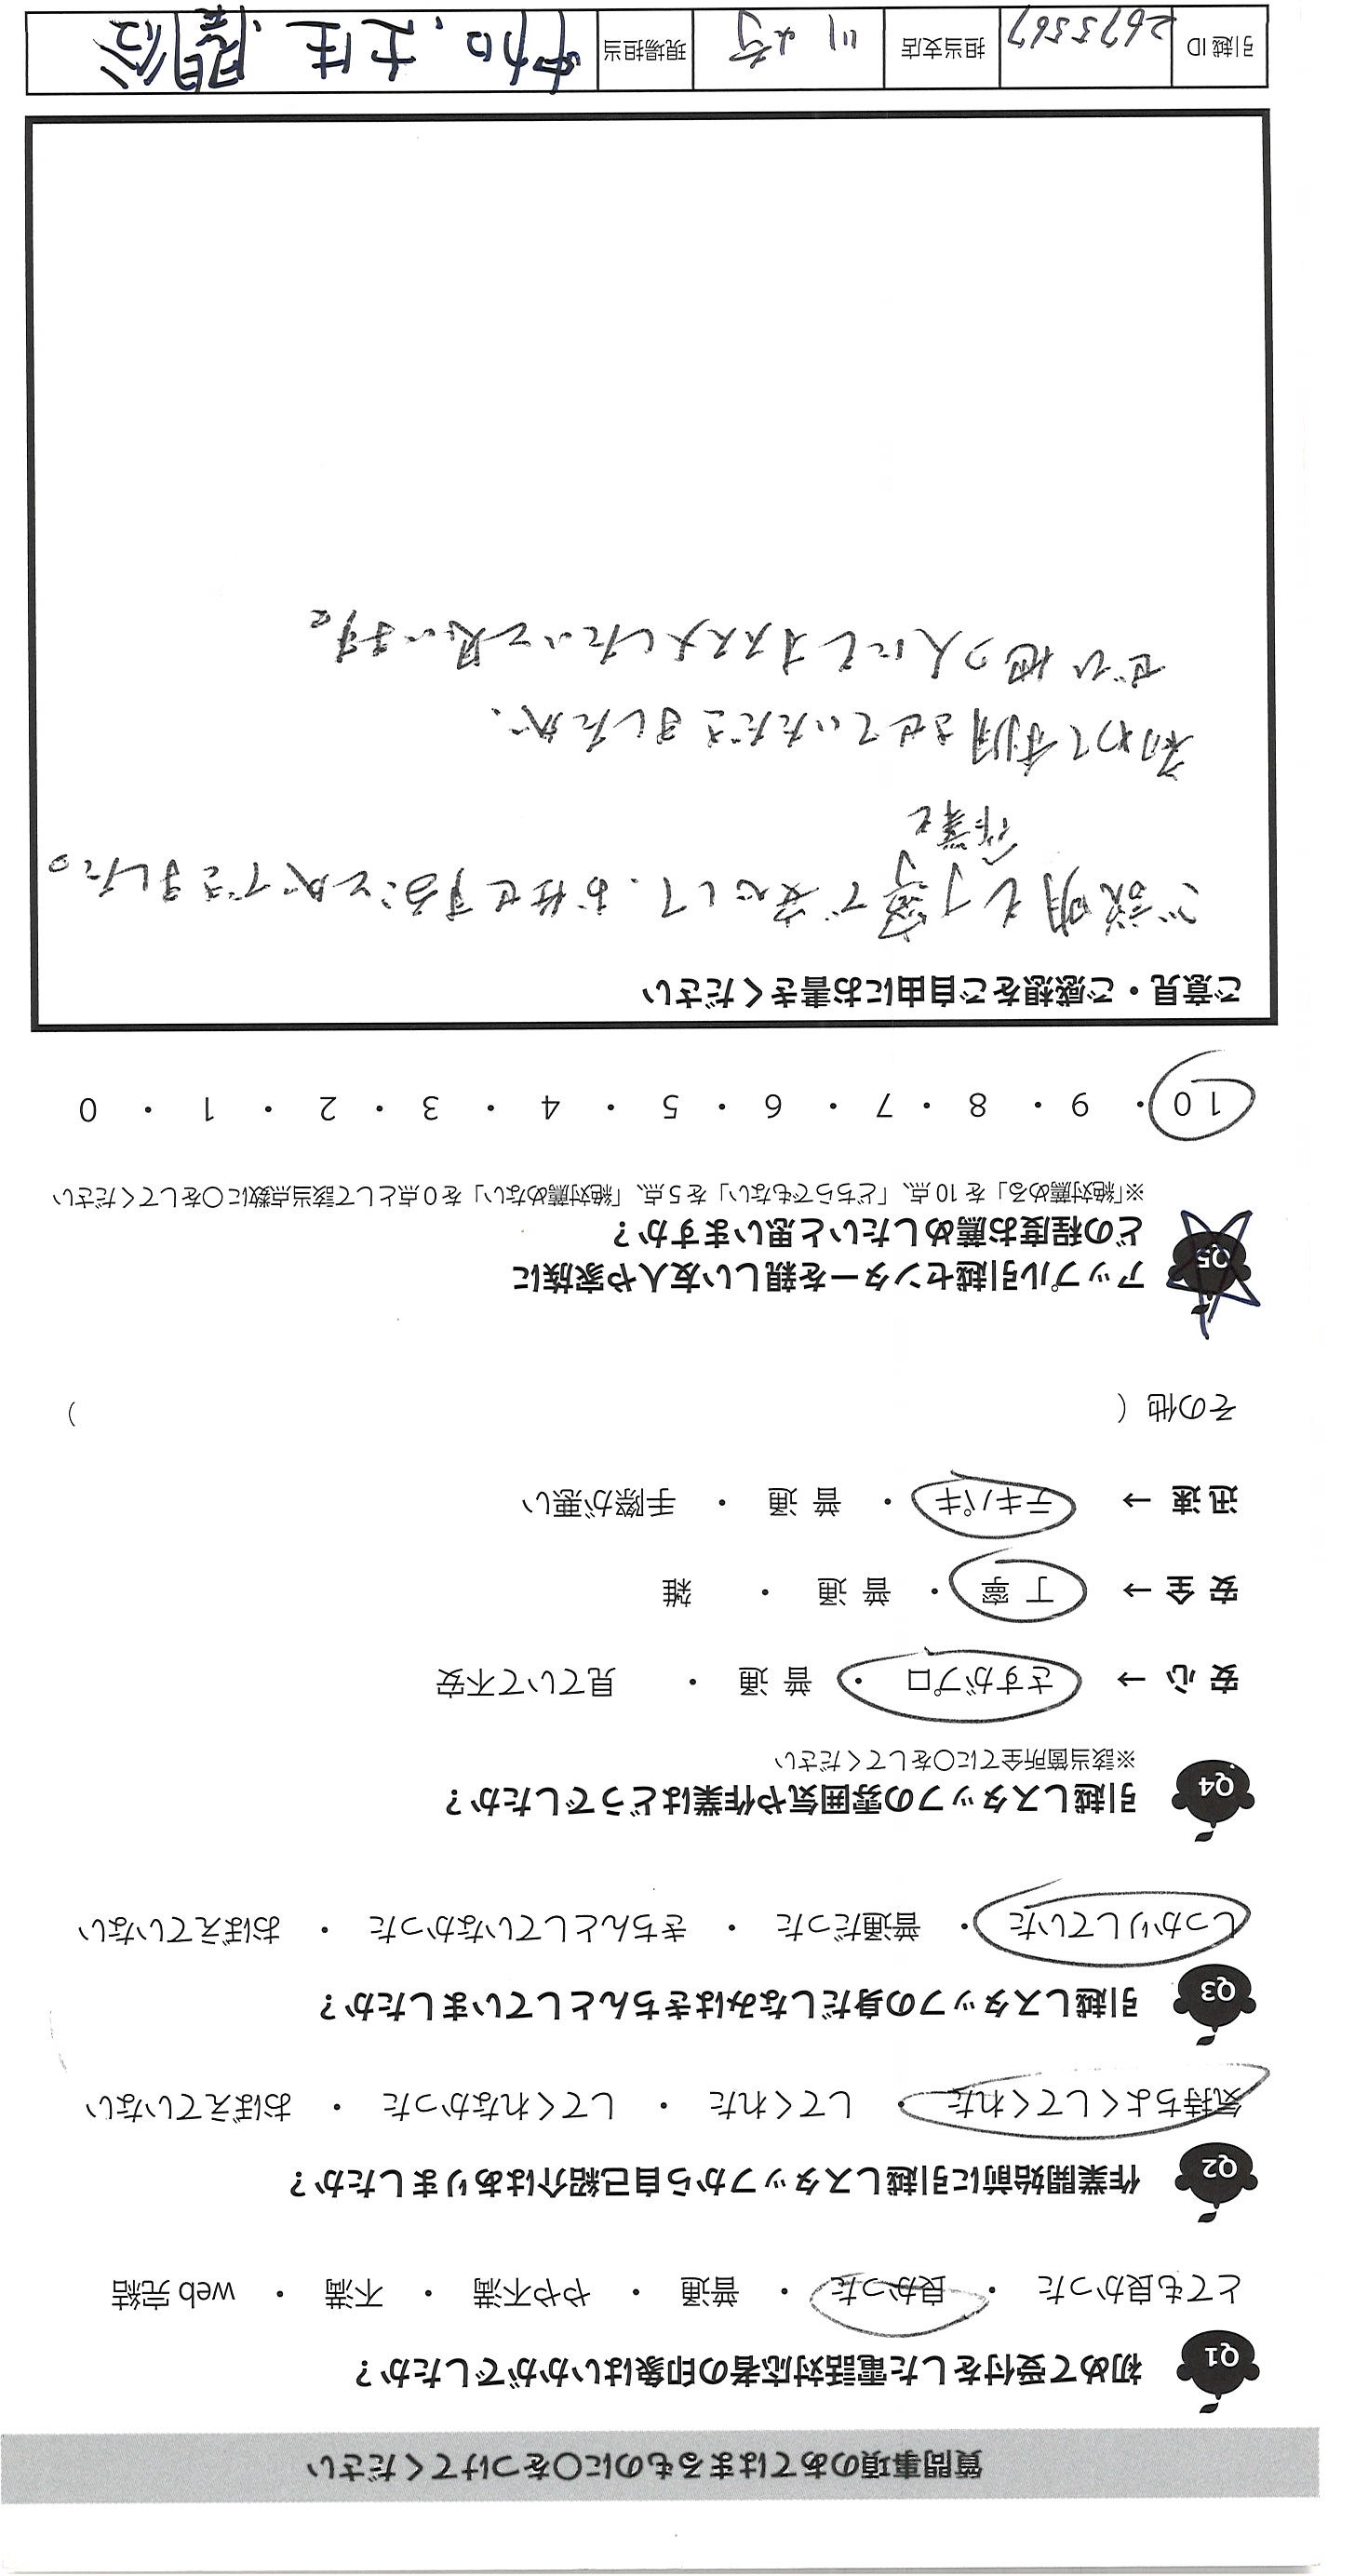 質問事項のあてはまるものに○をつけてください
Q1 初めて受付をした電話対応者の印象はいかがでしたか？
とても良かった ・ 良かった ・ 普通 ・ やや不満 ・ 不満 ・ web 完結
Q2 作業開始前に引越しスタッフから自己紹介はありましたか？
気持ちよくしてくれた ・ してくれた ・ してくれなかった ・ おぼえていない
Q3 引越しスタッフの身だしなみはきちんとしていましたか？
しっかりしていた ・ 普通だった ・ きちんとしていなかった ・ おぼえていない
Q4 引越しスタッフの雰囲気や作業はどうでしたか？
※該当箇所全てに○をしてください
安 心 → さすがプロ ・ 普 通 ・ 見ていて不安
安 全 → 丁 寧 ・ 普 通 ・ 雑
迅 速 → テキパキ ・ 普 通 ・ 手際が悪い
その他（ ）
Q5 アップル引越センターを親しい友人や家族に
どの程度お薦めしたいと思いますか？
※「絶対薦める」を 10 点、「どちらでもない」を 5 点、「絶対薦めない」を 0 点として該当点数に○をしてください
10 ・ 9 ・ 8 ・ 7 ・ 6 ・ 5 ・ 4 ・ 3 ・ 2 ・ 1 ・ 0
ご意見・ご感想をご自由にお書きください
ご説明も丁寧で安心して、お任せすることができました。
作業も
初めて利用させていただきましたが、
ぜひ他の人にもオススメしたいと思います。
引越 ID 2675567 担当支店 川崎 現場担当